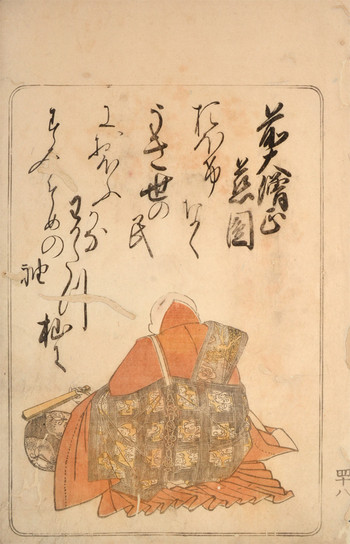 前大僧正
慈圓
おほけなく
うき世の民
におほふかな
わかたつ杣に
すみそめの袖
四十八